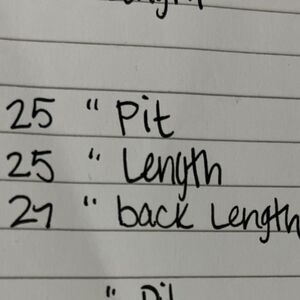 25 " Pit
25 " Length
" back Length
" Pit